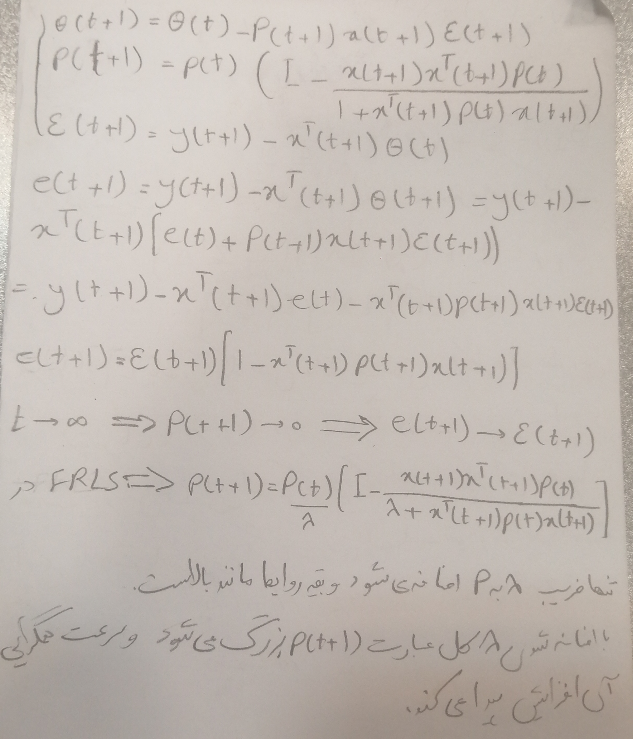 θ(t+1) = θ(t) - P(t+1) x(t+1) ε(t+1)
P(t+1) = P(t) ( I - x(t+1) xᵀ(t+1) P(t) / 1 + xᵀ(t+1) P(t) x(t+1) )
ε(t+1) = y(t+1) - xᵀ(t+1) θ(t)
e(t+1) = y(t+1) - xᵀ(t+1) θ(t+1) = y(t+1) -
xᵀ(t+1) [e(t) + P(t+1) x(t+1) ε(t+1)]
= y(t+1) - xᵀ(t+1) e(t) - xᵀ(t+1) P(t+1) x(t+1) ε(t+1)
e(t+1) = ε(t+1) [1 - xᵀ(t+1) P(t+1) x(t+1)]
t → ∞ ⟹ P(t+1) → 0 ⟹ e(t+1) → ε(t+1)
در FRLS ⟹ P(t+1) = P(t)/λ [ I - x(t+1) xᵀ(t+1) P(t) / λ + xᵀ(t+1) P(t) x(t+1) ]
تنها ضریب λ به P اضافه می شود و بقیه روابط مانند بالاست.
با اضافه شدن λ کل عبارت P(t+1) بزرگ می شود و سرعت همگرایی
آن افزایش پیدا می کند.